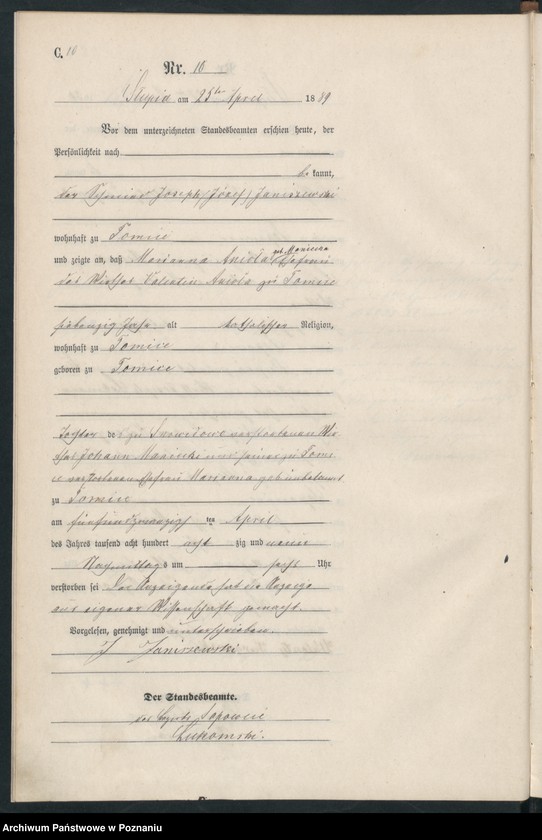 C. 10
Nr. 10
Słupia am 25ten April 1889
Vor dem unterzeichneten Standesbeamten erschien heute, der
Persönlichkeit nach
be kannt,
der Schmied Joseph (Józef) Janiszewski
wohnhaft zu Tomice
geb. Maniecka
und zeigte an, daß Marianna Anioła Ehefrau
des Wirthes Valentin Anioła zu Tomice
siebenzig Jahr alt katholischer Religion,
wohnhaft zu Tomice
geboren zu Tomice
Tochter der zu verstorbenen Wir-
thes Johann Maniecki und seiner zu Tomi
ce verstorbenen Ehefrau Marianna geb. unbekannt
zu Tomice
am fünfundzwanzigsten April
des Jahres tausend acht hundert acht zig und neun
Nachmittags um sechs Uhr
verstorben sei Der Anzeigende hat die Anzeige
aus eigener Wissenschaft gemacht.
Vorgelesen, genehmigt und unterschrieben.
J Janiszewski
Der Standesbeamte.
des Bezirks Sapowice
Archiwum Państwowe w Poznaniu